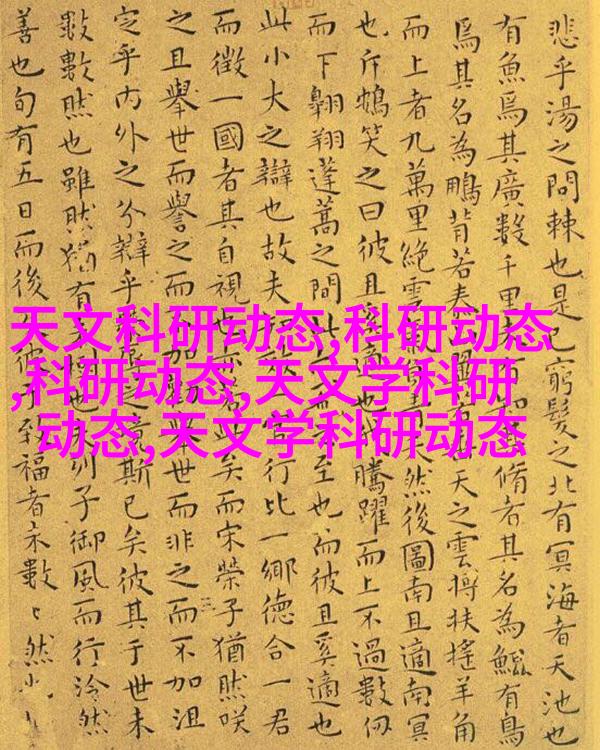 悲乎湯之問棘也是已窮髮之北有冥海者天池也
有魚焉其廣數千里有脩者其名為鯤有鳥
焉其名為鵬背若天之雲摶扶搖羊角
而上者九萬里絕雲然後圖南且適南冥
也斥鴳笑之曰彼且適也騰躍而上不過數仞
而下翱翔蓬蒿之間此至也而彼且奚適也
此小大之辯也故夫行比一鄉德合一君
而徵一國者其自視也矣而宋榮子猶然咲
之且舉世而譽之而舉世而非之而不加沮
定乎內外之分辯乎斯已矣彼其于世未
數數然也雖然猶有也子御風而行泠然
善也旬有五日而後彼致福者未數〻然也
天文科研动态,科研动态
,科研动态,天文学科研
动态,天文学科研动态